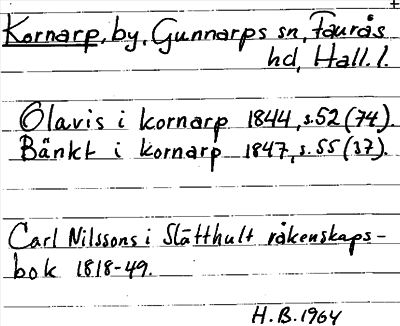 Kornarp, by, Gunnarps sn, Faurås
hd, Hall. l.
Olavis i kornarp 1844, s.52 (74).
Bänkt i kornarp 1847, s.55 (37).
Carl Nilssons i Slätthult räkenskaps-
bok 1818-49.
H.B. 1964